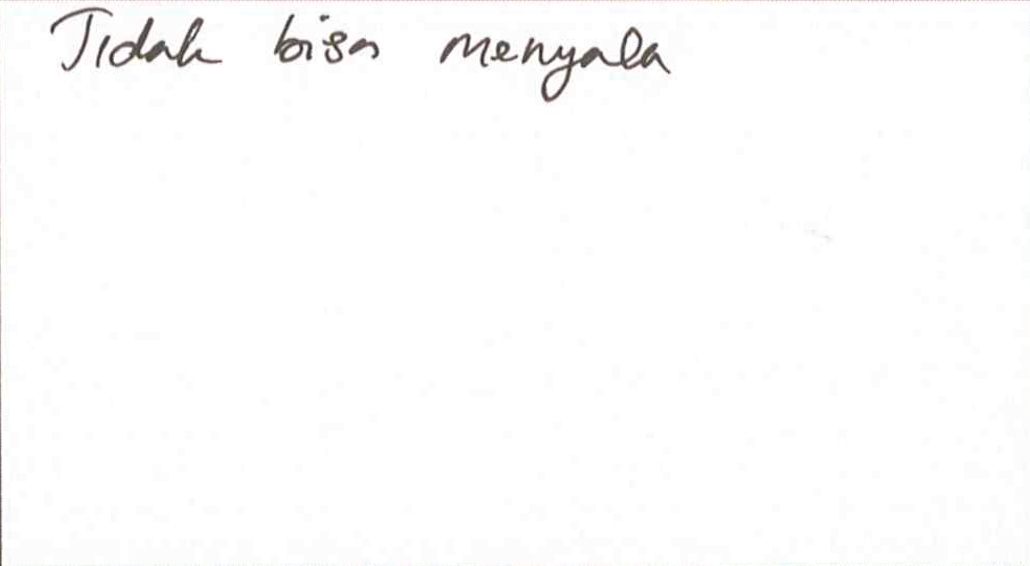 Tidak bisa menyala